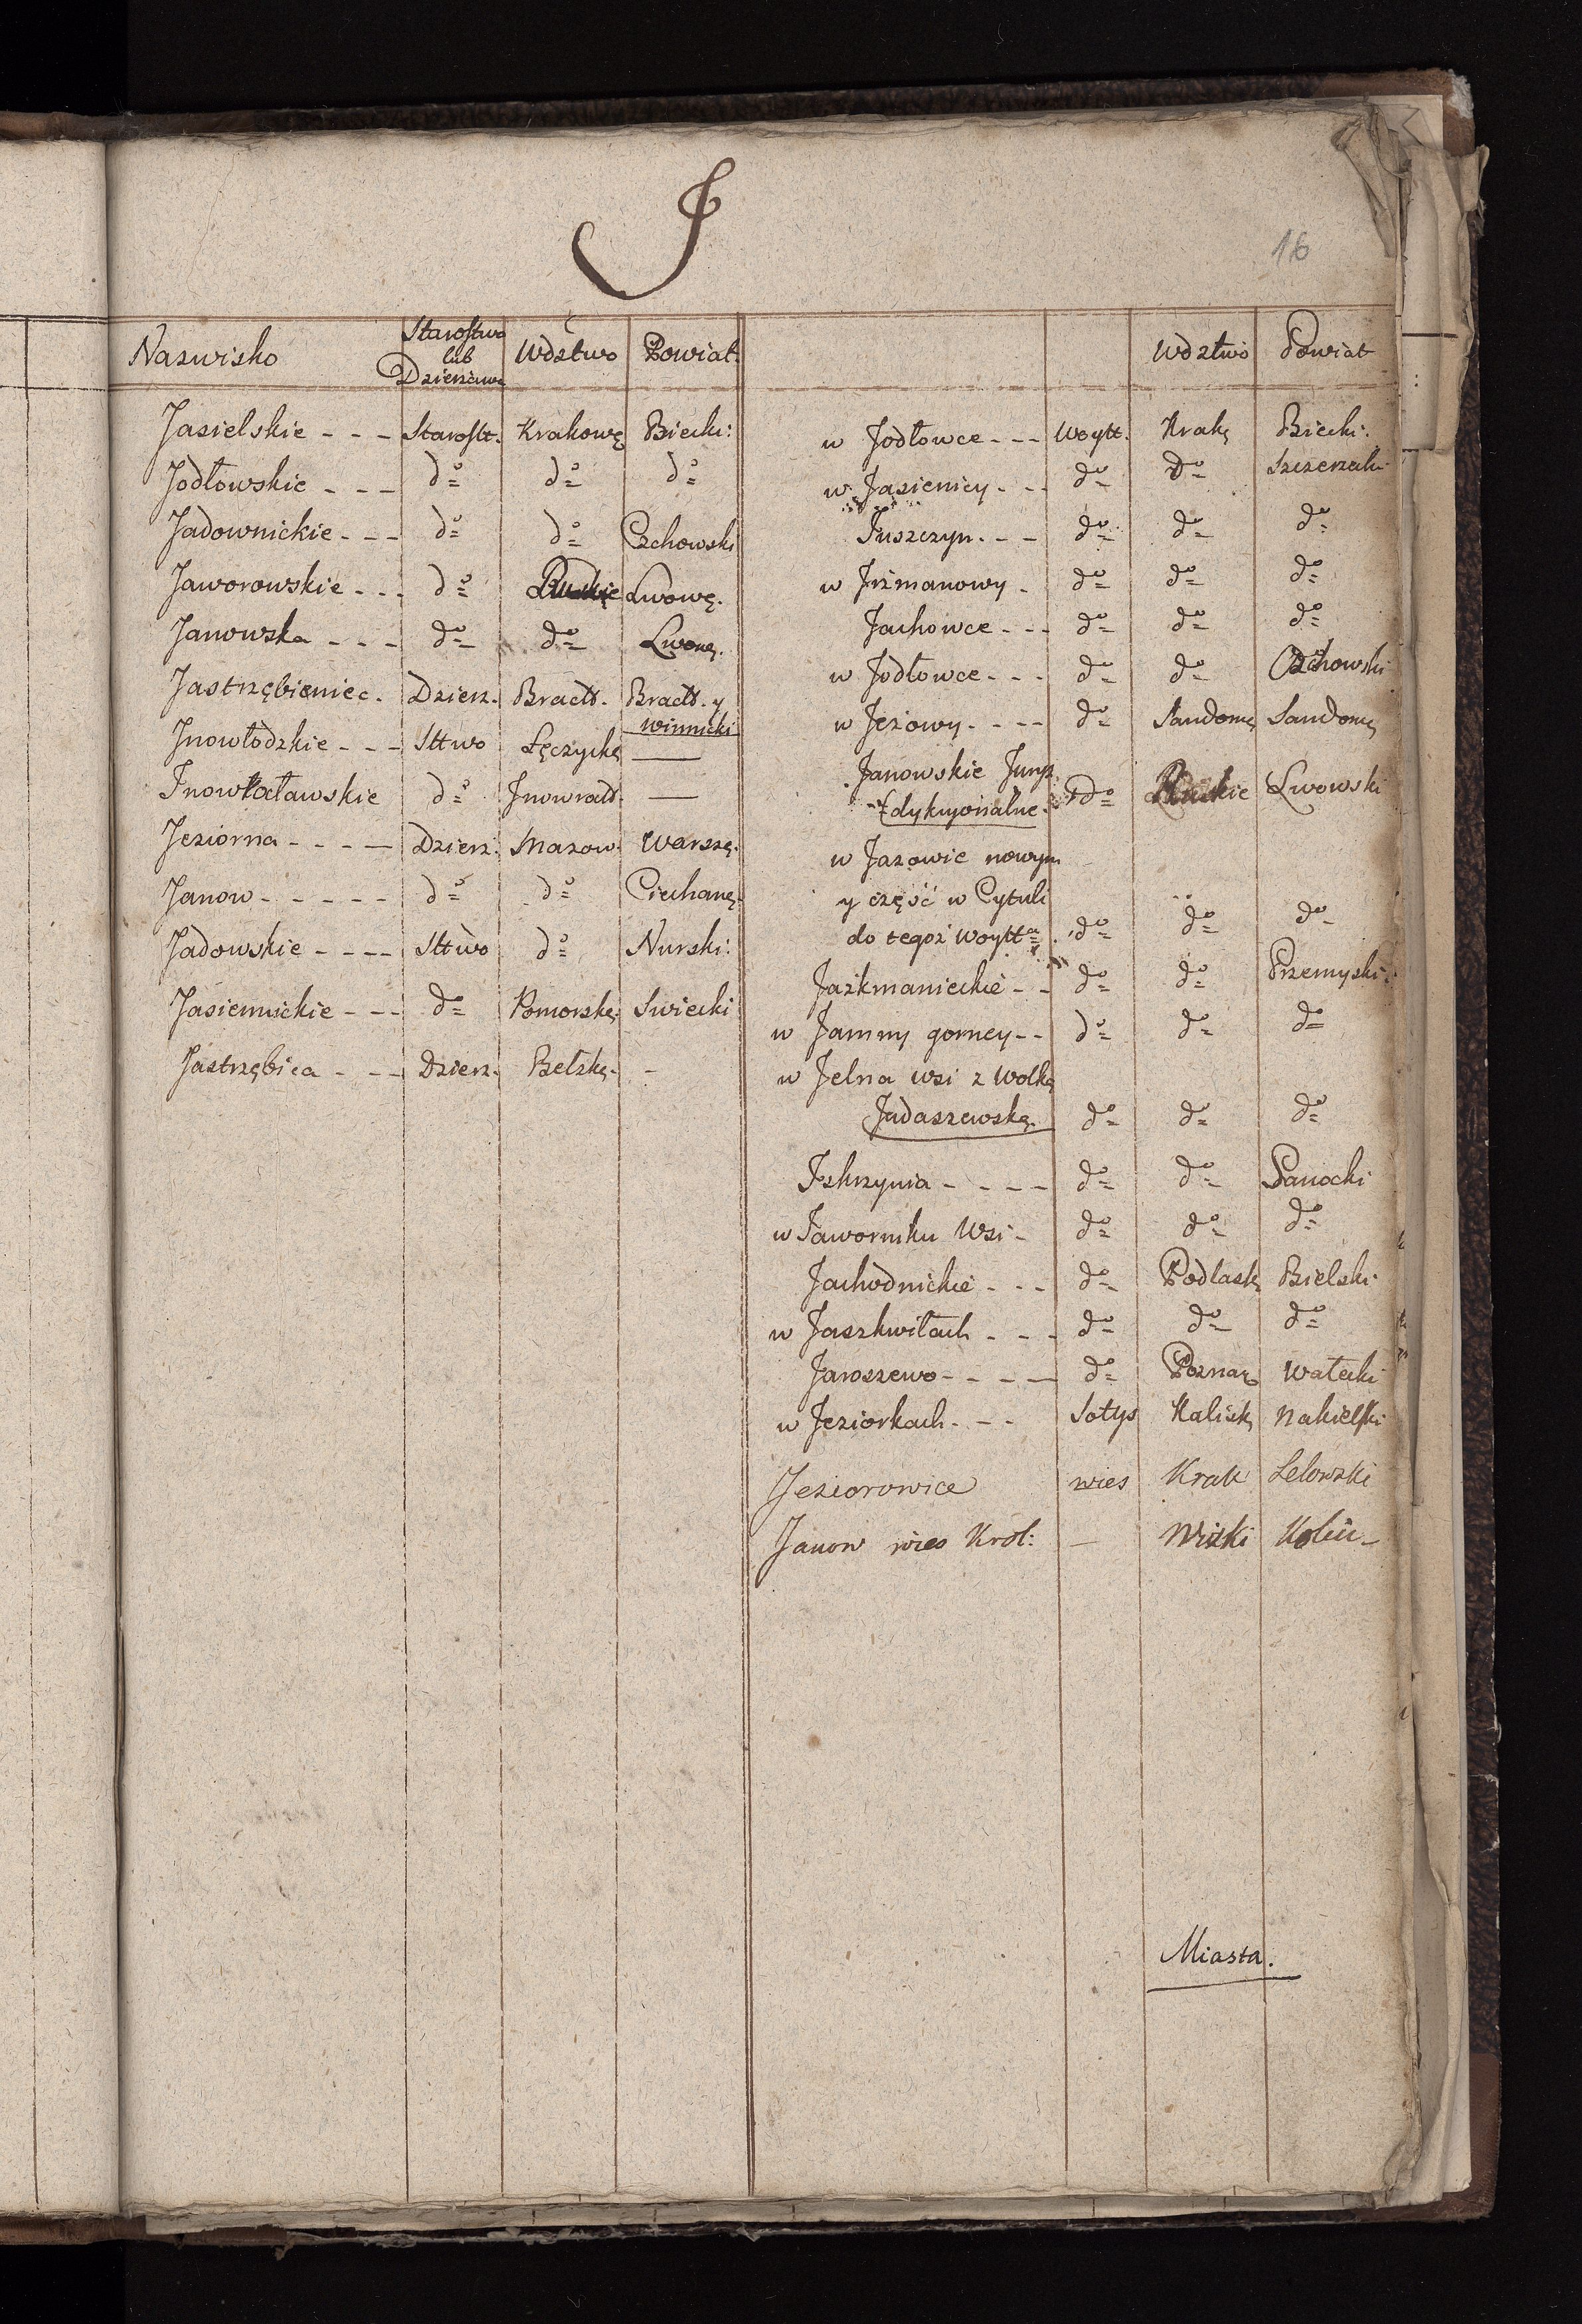 J
16
Nazwisko Starostwo lub Dzierżawa Wdztwo Powiat
Jasielskie - - - Starostt. Krakowę Biecki:
Jodłowskie - - - do do do
Jadownickie - - - do do Czchowski
Jaworowskie - - - do Ruskię Lwowę.
Janowska - - - do do Lwowę.
Jastrzębieniec. Dzierz. Bracls. Bracls. y
winnicki
Jnowłodzkie - - - Sttwo Łęczyckę —
Jnowłocławskie do Jnowrocł. —
Jeziorna - - - - Dzierz. Mazow. Warszę.
Janow - - - - - do do Ciechanę.
Jadowskie - - - - Sttwo do Nurski:
Jasiennickie - - - do Pomorskę. Swiecki
Jastrzębica - - - Dzierz. Bełzkę. -
Wdztwo Powiat
w Jodłowce - - - Woytt. Krakę Biecki.
w Jasienicy - - - do do Szczerzecki
Juszczyn. - - do do do
w Jrzmanowy - do do do
Jachowce - - - do do do
w Jodłowce - - - do do Czchowski
w Jeżowy - - - - do Sandomę Sandomę
Janowskie Juryz
dykcyonalne. do Ruskie Lwowski
w Jazowie nowym
y część w Cytuli
do tegoż Woytta do do do
Jaźkmanieckie - - do do Przemyski
w Jamny gorney - - do do do
w Jelna wsi z Wolką
Judaszewską. do do do
Jskrzynia - - - - do do Sanocki
w Jaworniku Wsi - do do do
Jachodnickie - - - do Podlask. Bielski
w Jaszkwiłach - - - do do do
Jaroszewo - - - - do Poznaę Wałecki
w Jeziorkach. - - Sołtys Kaliskę Nakielski
Jeziorowice wies Krak Lelowski
Janow wies Krol: — Wizki Kolin-
Miasta.